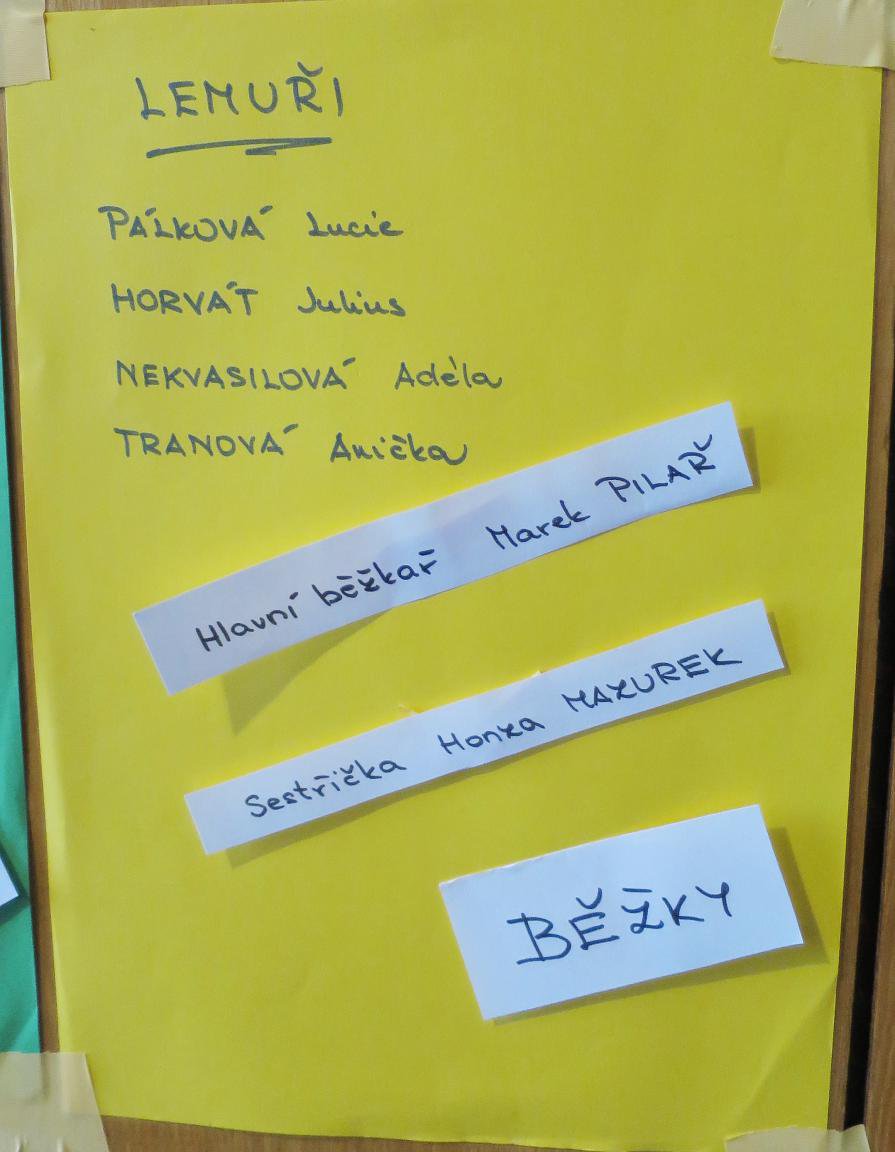 LEMUŘI
PÁLKOVÁ Lucie
HORVÁT Julius
NEKVASILOVÁ Adéla
TRANOVÁ Anička
Hlavní běžkař Marek PILAŘ
Sestřička Honza MAZUREK
BĚŽKY